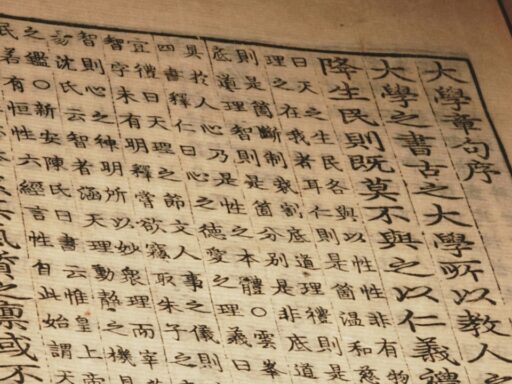 大學章句序
大學之書古之大學所以教人
降生民則既莫不與之以仁義禮
曰天之生民各與以性性非有物
理之在我者耳仁則是箇溫和慈
則是箇斷制裁割底道理禮則是
底道理智則是箇分別是非底道
具於人心乃是性之本體○雲峯
四書釋仁曰心之德愛之理義
宜禮曰天理之節文人事之儀則
智字未有明釋嘗欲竊取朱子之
智則心之神明所以妙衆理而宰
沈氏云智者涵天理動靜之機
之鑑○新安陳氏曰書云惟皇上帝
民若有恒性六經言性自此始謂天
氣質之稟或不